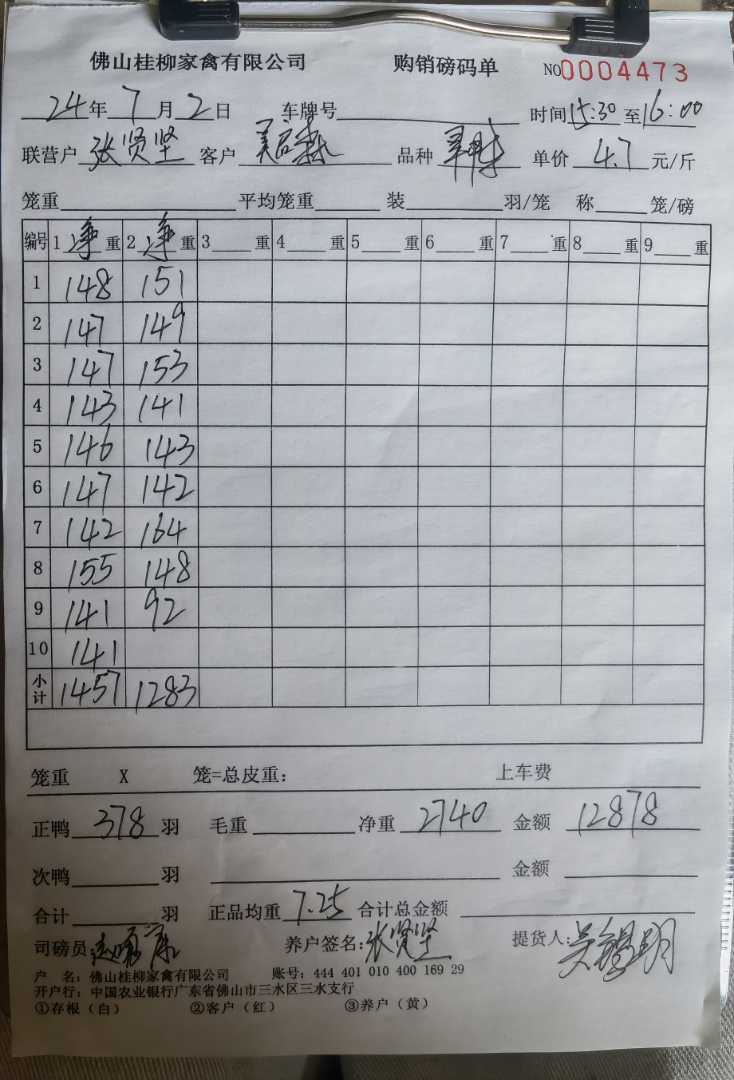 佛山桂柳家禽有限公司 购销磅码单 NO0004473
24年7月2日 车牌号 时间15:30至16:00
联营户 张贤坚 客户 品种 单价 4.7 元/斤
笼重 平均笼重 装 羽/笼 称 笼/磅
编号 1 净重 2 净重 3 重 4 重 5 重 6 重 7 重 8 重 9 重
1 148 151
2 147 149
3 147 153
4 143 141
5 146 143
6 147 142
7 142 164
8 155 148
9 141 92
10 141
小计 1457 1283
笼重 X 笼=总皮重: 上车费
正鸭 378 羽 毛重 净重 2740 金额 12878
次鸭 羽 金额
合计 羽 正品均重 7.25 合计总金额
司磅员: 养户签名: 张贤坚 提货人: 吴锡明
户 名: 佛山桂柳家禽有限公司 账号: 444 401 010 400 169 29
开户行: 中国农业银行广东省佛山市三水区三水支行
①存根(白) ②客户(红) ③养户(黄)